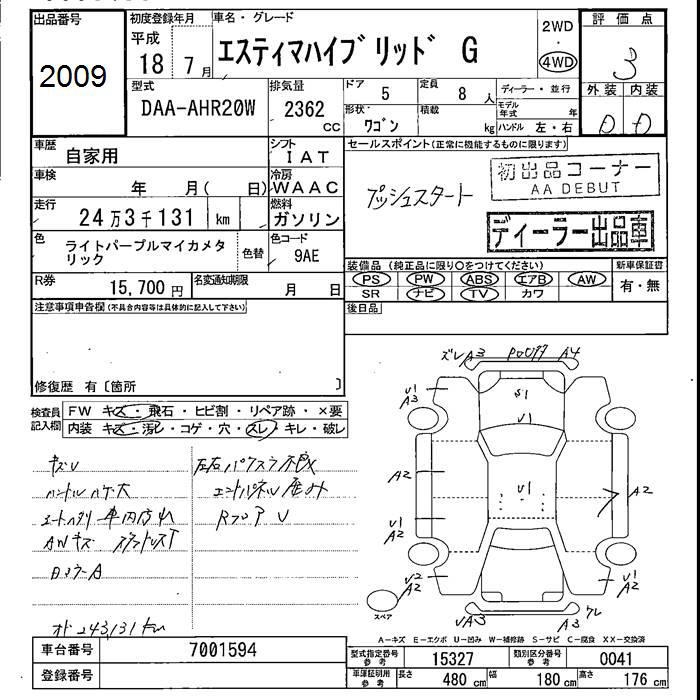 出品番号 初度登録年月 車名・グレード 2WD 評価点
2009 平成 18 7月 エスティマハイブリッド G 4WD 3
型式 排気量 ドア 定員 ディーラー・並行 外装 内装
DAA-AHR20W 2362 CC 5 8人 モデル年式 年 D D
形状 ワゴン 積載 kg ハンドル 左・右
車歴 自家用 シフト IAT セールスポイント(正常に機能するものに限ります)
車検 年 月( 日) 冷房 WAAC プッシュスタート 初出品コーナー
AA DEBUT
走行 24万3千131 km 燃料 ガソリン ディーラー出品車
色 ライトパープルマイカメタ
リック 色替 色コード 9AE
装備品(純正品に限り○をつけてください) 新車保証書
R券 15,700円 名変通知期限 月 日 PS PW ABS エアB AW 有・無
SR ナビ TV カワ
注意事項申告欄(不具合内容等は具体的に記入して下さい) 後日品
修復歴 有〔箇所 〕
検査員記入欄 FW キズ・飛石・ヒビ割・リペア跡・×要
内装 キズ・汚レ・コゲ・穴・スレ・キレ・破レ
ズレ A3 A4
U1 A3 S1
U1
A2 U1 A2
U1 A2
U2 A2 U1 A2
スペア A3
キズU
ハンドルハゲ大
車内汚れ
AWキズ
R ドア U
オド 243,131km
A-キズ E-エクボ U-凹み W-補修跡 S-サビ C-腐食 XX-交換済
車台番号 7001594 型式指定番号 参考 15327 類別区分番号 参考 0041
登録番号 車庫証明用 参考 長さ 480 cm 幅 180 cm 高さ 176 cm